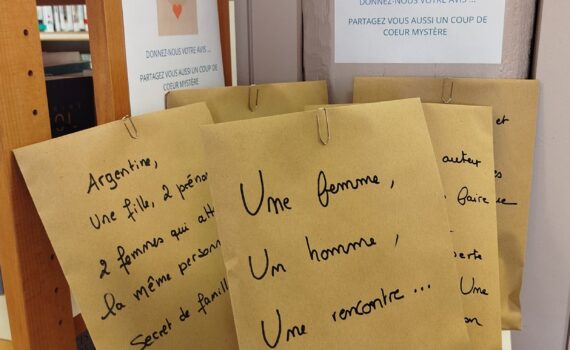 DONNEZ-NOUS VOTRE AVIS ...
PARTAGEZ VOUS AUSSI UN COUP DE
COEUR MYSTÈRE
DONNEZ-NOUS VOTRE AVIS ...
PARTAGEZ VOUS AUSSI UN COUP DE
COEUR MYSTÈRE
Argentine,
Une fille, 2 préno
2 femmes qui att
la même person
Secret de famill
Une femme,
Un homme,
Une rencontre...
et
auteur
faire
Une